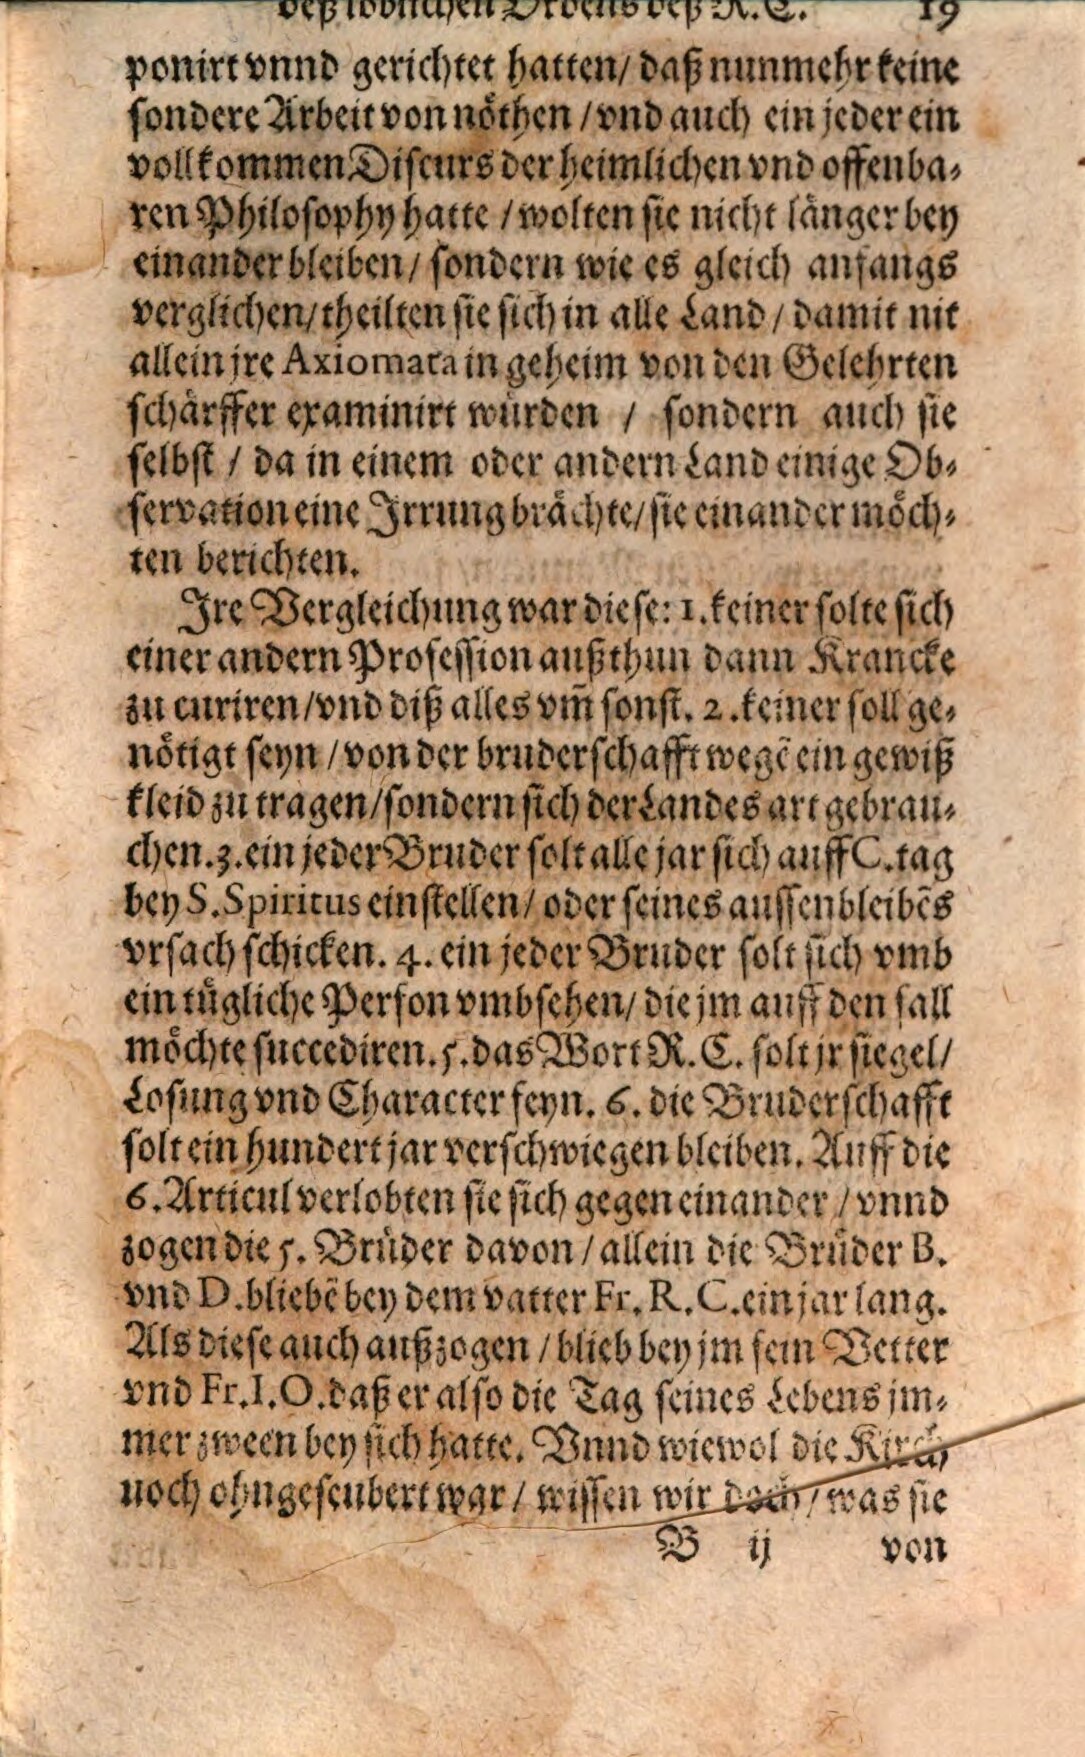 deß löblichen Ordens deß R. C. 19
ponirt vnnd gerichtet hatten/ daß nunmehr keine
sondere Arbeit von nöthen / vnd auch ein jeder ein
vollkommen Discurs der heimlichen vnd offenba-
ren Philosophy hatte / wolten sie nicht länger bey
einander bleiben/ sondern wie es gleich anfangs
verglichen/ theilten sie sich in alle Land / damit nit
allein jre Axiomata in geheim von den Gelehrten
schärffer examinirt würden / sondern auch sie
selbst / da in einem oder andern Land einige Ob-
servation eine Irrung brächte/ sie einander möch-
ten berichten.
Ire Vergleichung war diese: 1. keiner solte sich
einer andern Profession außthun dann Krancke
zu curiren/ vnd diß alles vm̃ sonst. 2. keiner soll ge-
nötigt seyn / von der bruderschafft wegẽ ein gewiß
kleid zu tragen/ sondern sich der Landes art gebrau-
chen. 3. ein jeder Bruder solt alle jar sich auff C. tag
bey S. Spiritus einstellen/ oder seines aussenbleibẽs
vrsach schicken. 4. ein jeder Bruder solt sich vmb
ein tügliche Person vmbsehen/ die jm auff den fall
möchte succediren. 5. das Wort R. C. solt jr siegel/
Losung vnd Character seyn. 6. die Bruderschafft
solt ein hundert jar verschwiegen bleiben. Auff die
6. Articul verlobten sie sich gegen einander / vnnd
zogen die 5. Brüder davon / allein die Brüder B.
vnd D. bliebẽ bey dem vatter Fr. R. C. ein jar lang.
Als diese auch außzogen / blieb bey jm sein Vetter
vnd Fr. I. O. daß er also die Tag seines Lebens jm-
mer zween bey sich hatte. Vnnd wiewol die Kirch
noch ohngeseubert war / wissen wir doch / was sie
B ij von